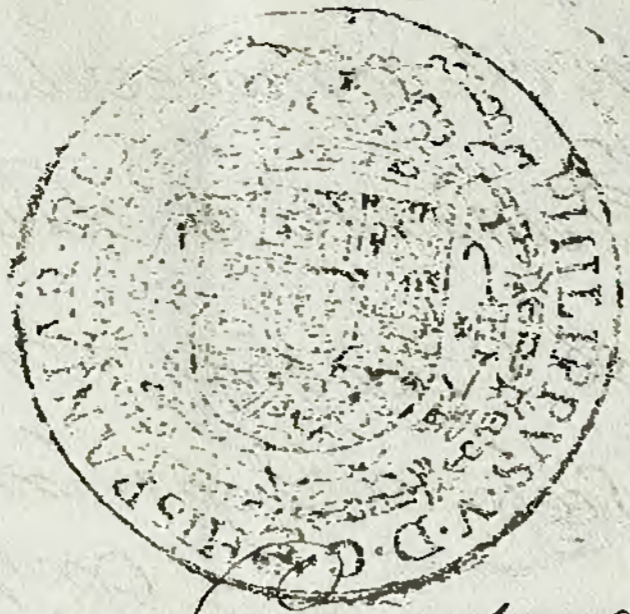 PHILIPPUS·V·D·G·HISPANIAR·RE